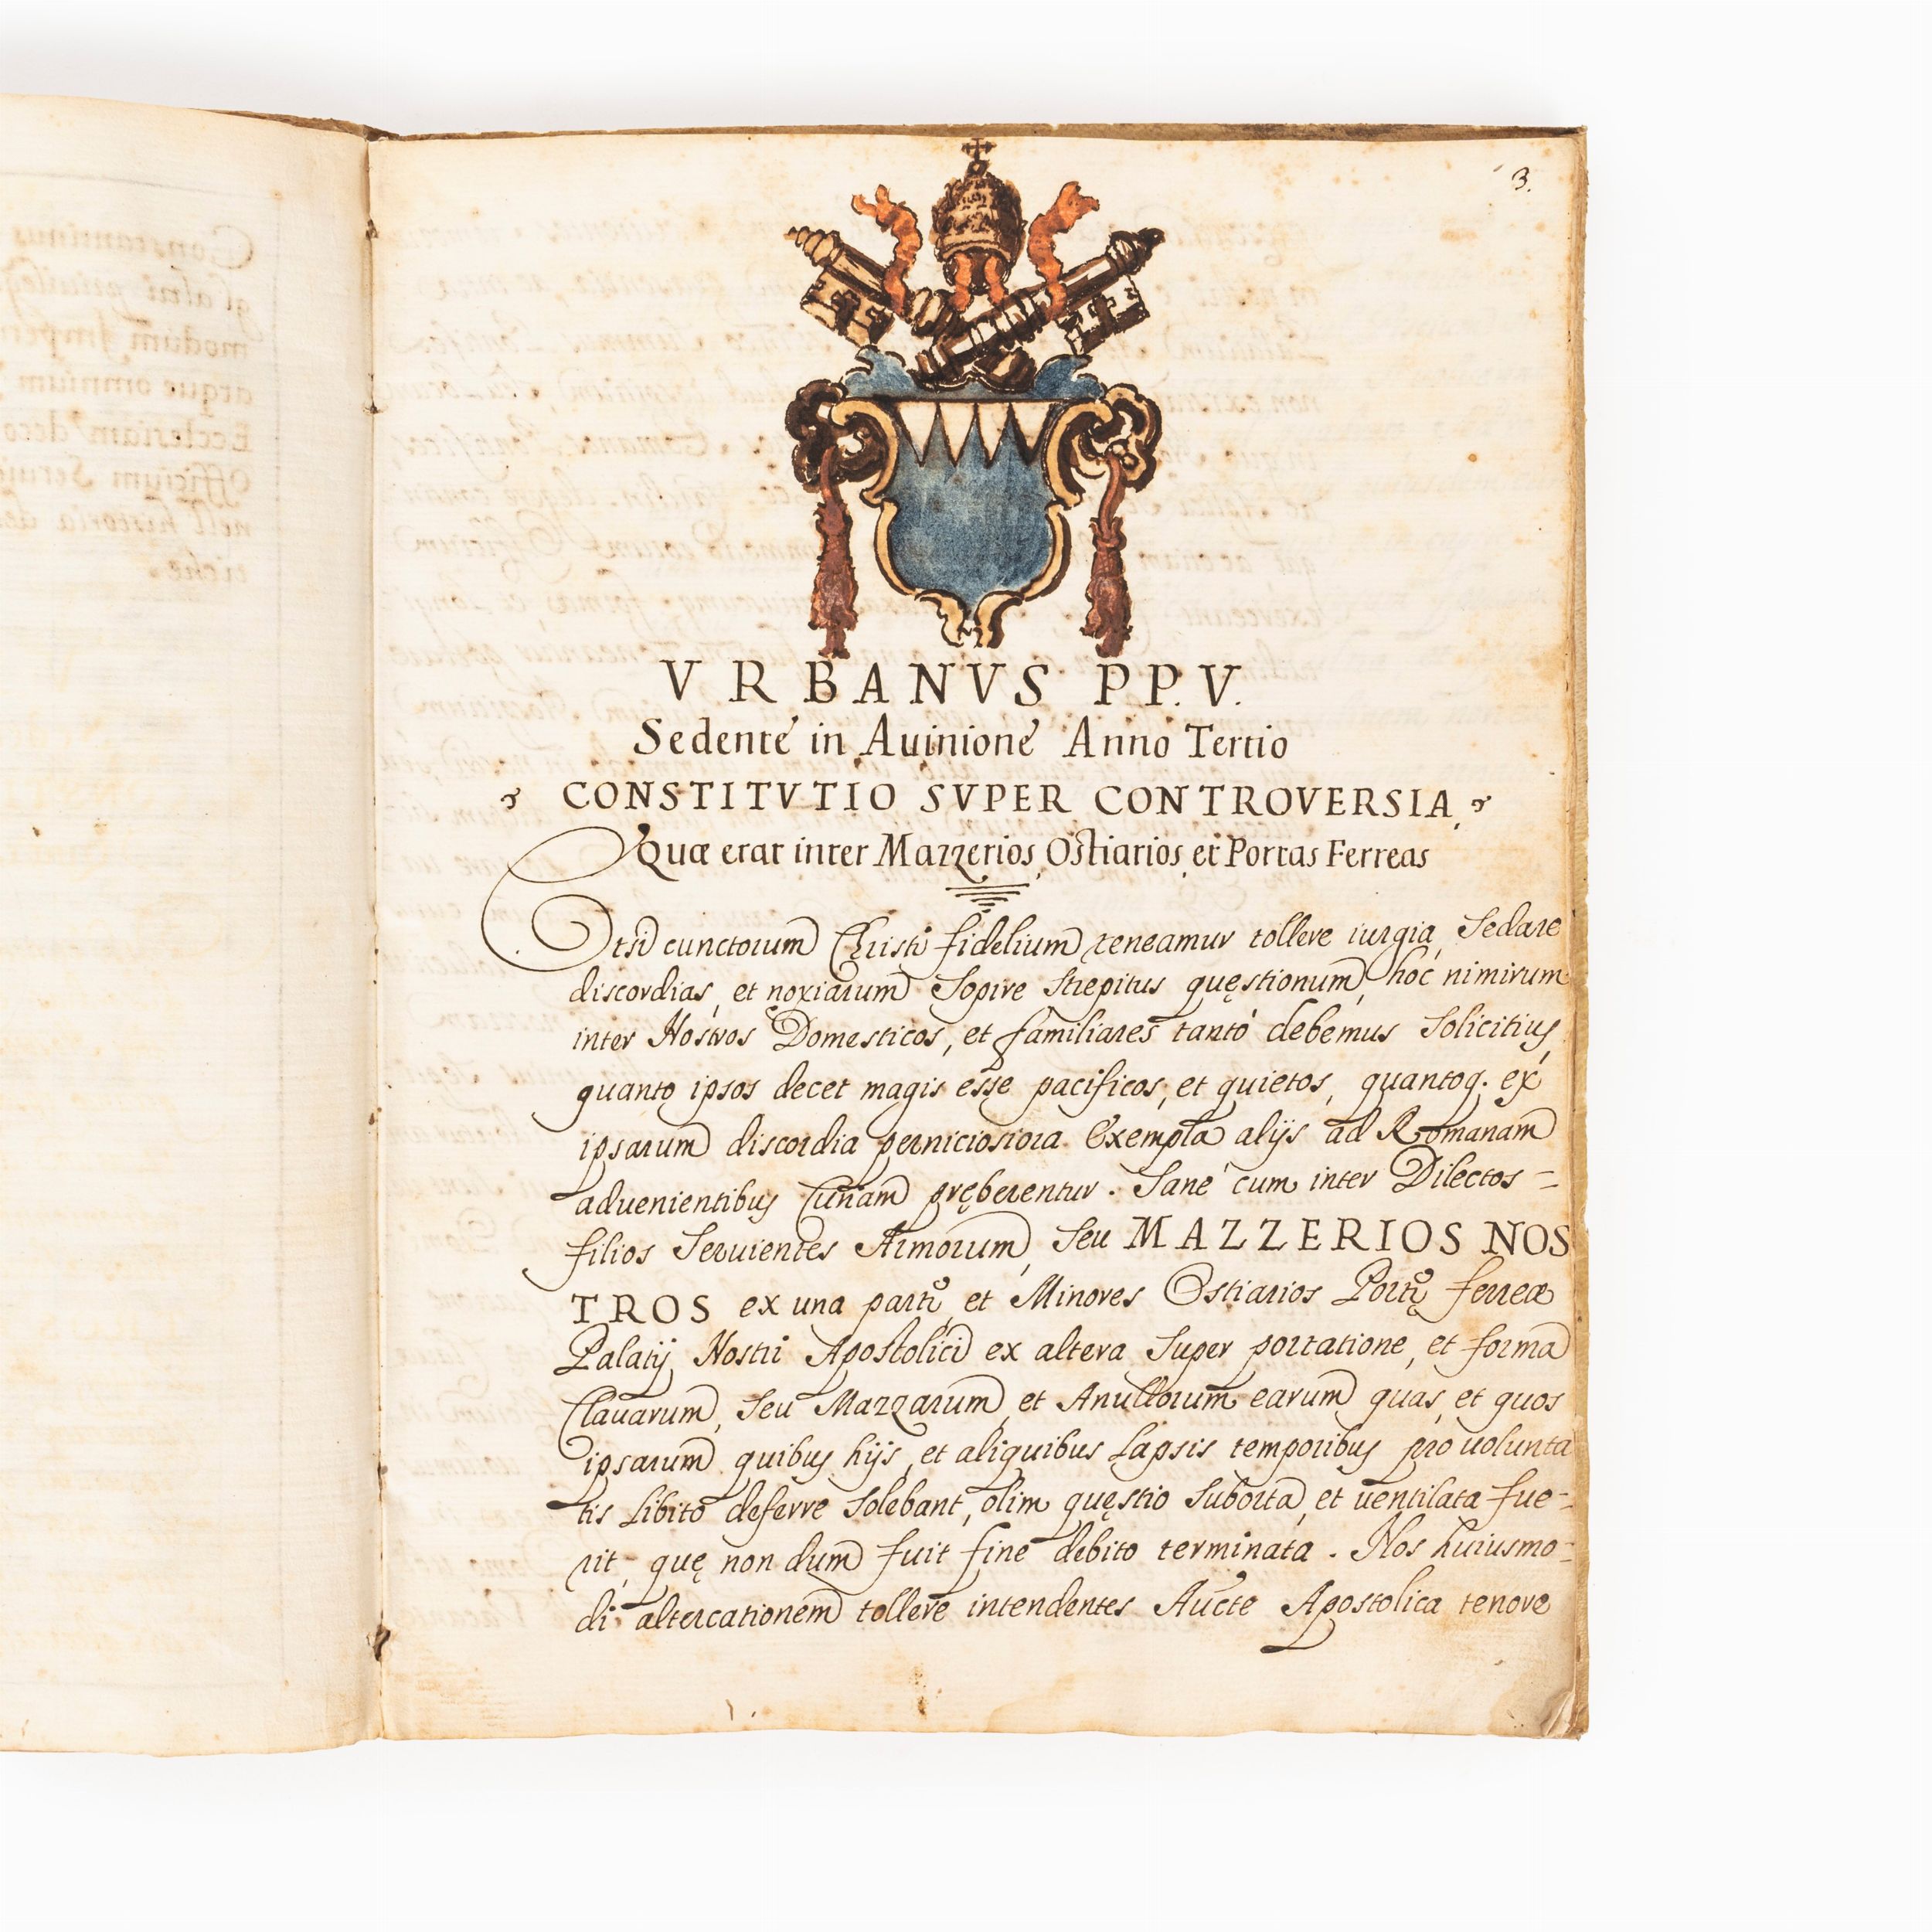 3.
VRBANVS PP. V.
Sedente in Auinione Anno Tertio
CONSTITVTIO SVPER CONTROVERSIA,
Quæ erat inter Mazzerios, Ostiarios, et Portas Ferreas
Etsi cunctorum Christi fidelium teneamur tollere iurgia, Sedare
discordias, et noxiarum Sopire Strepitus quęstionum, hoc nimirum
inter Nostros Domesticos, et familiares tantò debemus Solicitius,
quanto ipsos decet magis esse pacificos, et quietos, quantoq. ex
ipsarum discordia perniciosiora Exempla alijs ad Romanam
aduenientibus Curiam pręberentur. Sanè cum inter Dilectos =
filios Seruientes Armorum, Seu MAZZERIOS NOS
TROS ex una parte, et Minores Ostiarios Portę ferreæ
Palatij Nostri Apostolici ex altera Super portatione, et forma
Clauarum, Seu Mazzarum, et Anullorum earum quas, et quos
ipsarum quibus hijs, et aliquibus Lapsis temporibus pro uolunta
tis Libito deferre Solebant, olim quęstio Suborta, et uentilata fue=
rit, quę non dum fuit fine debito terminata. Nos huiusmo=
di altercationem tollere intendentes Aucte Apostolica tenore
Constantinus
modum Imper
atque omnium
Ecclesiam deco
Officium Serui
nell'historia de
tiche.